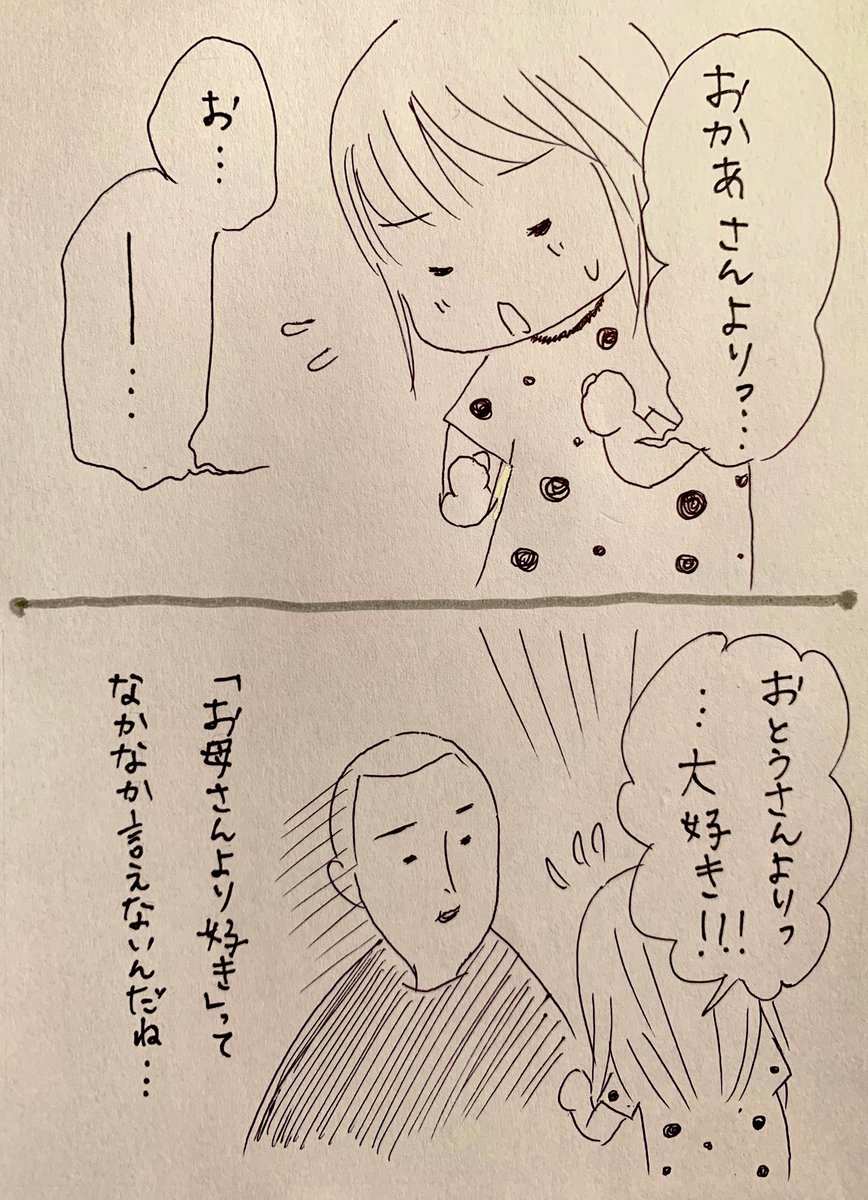 おかあさんよりっ…
お…
―…
おとうさんよりっ
…大好き!!!
「お母さんより好き」って
なかなか言えないんだね…